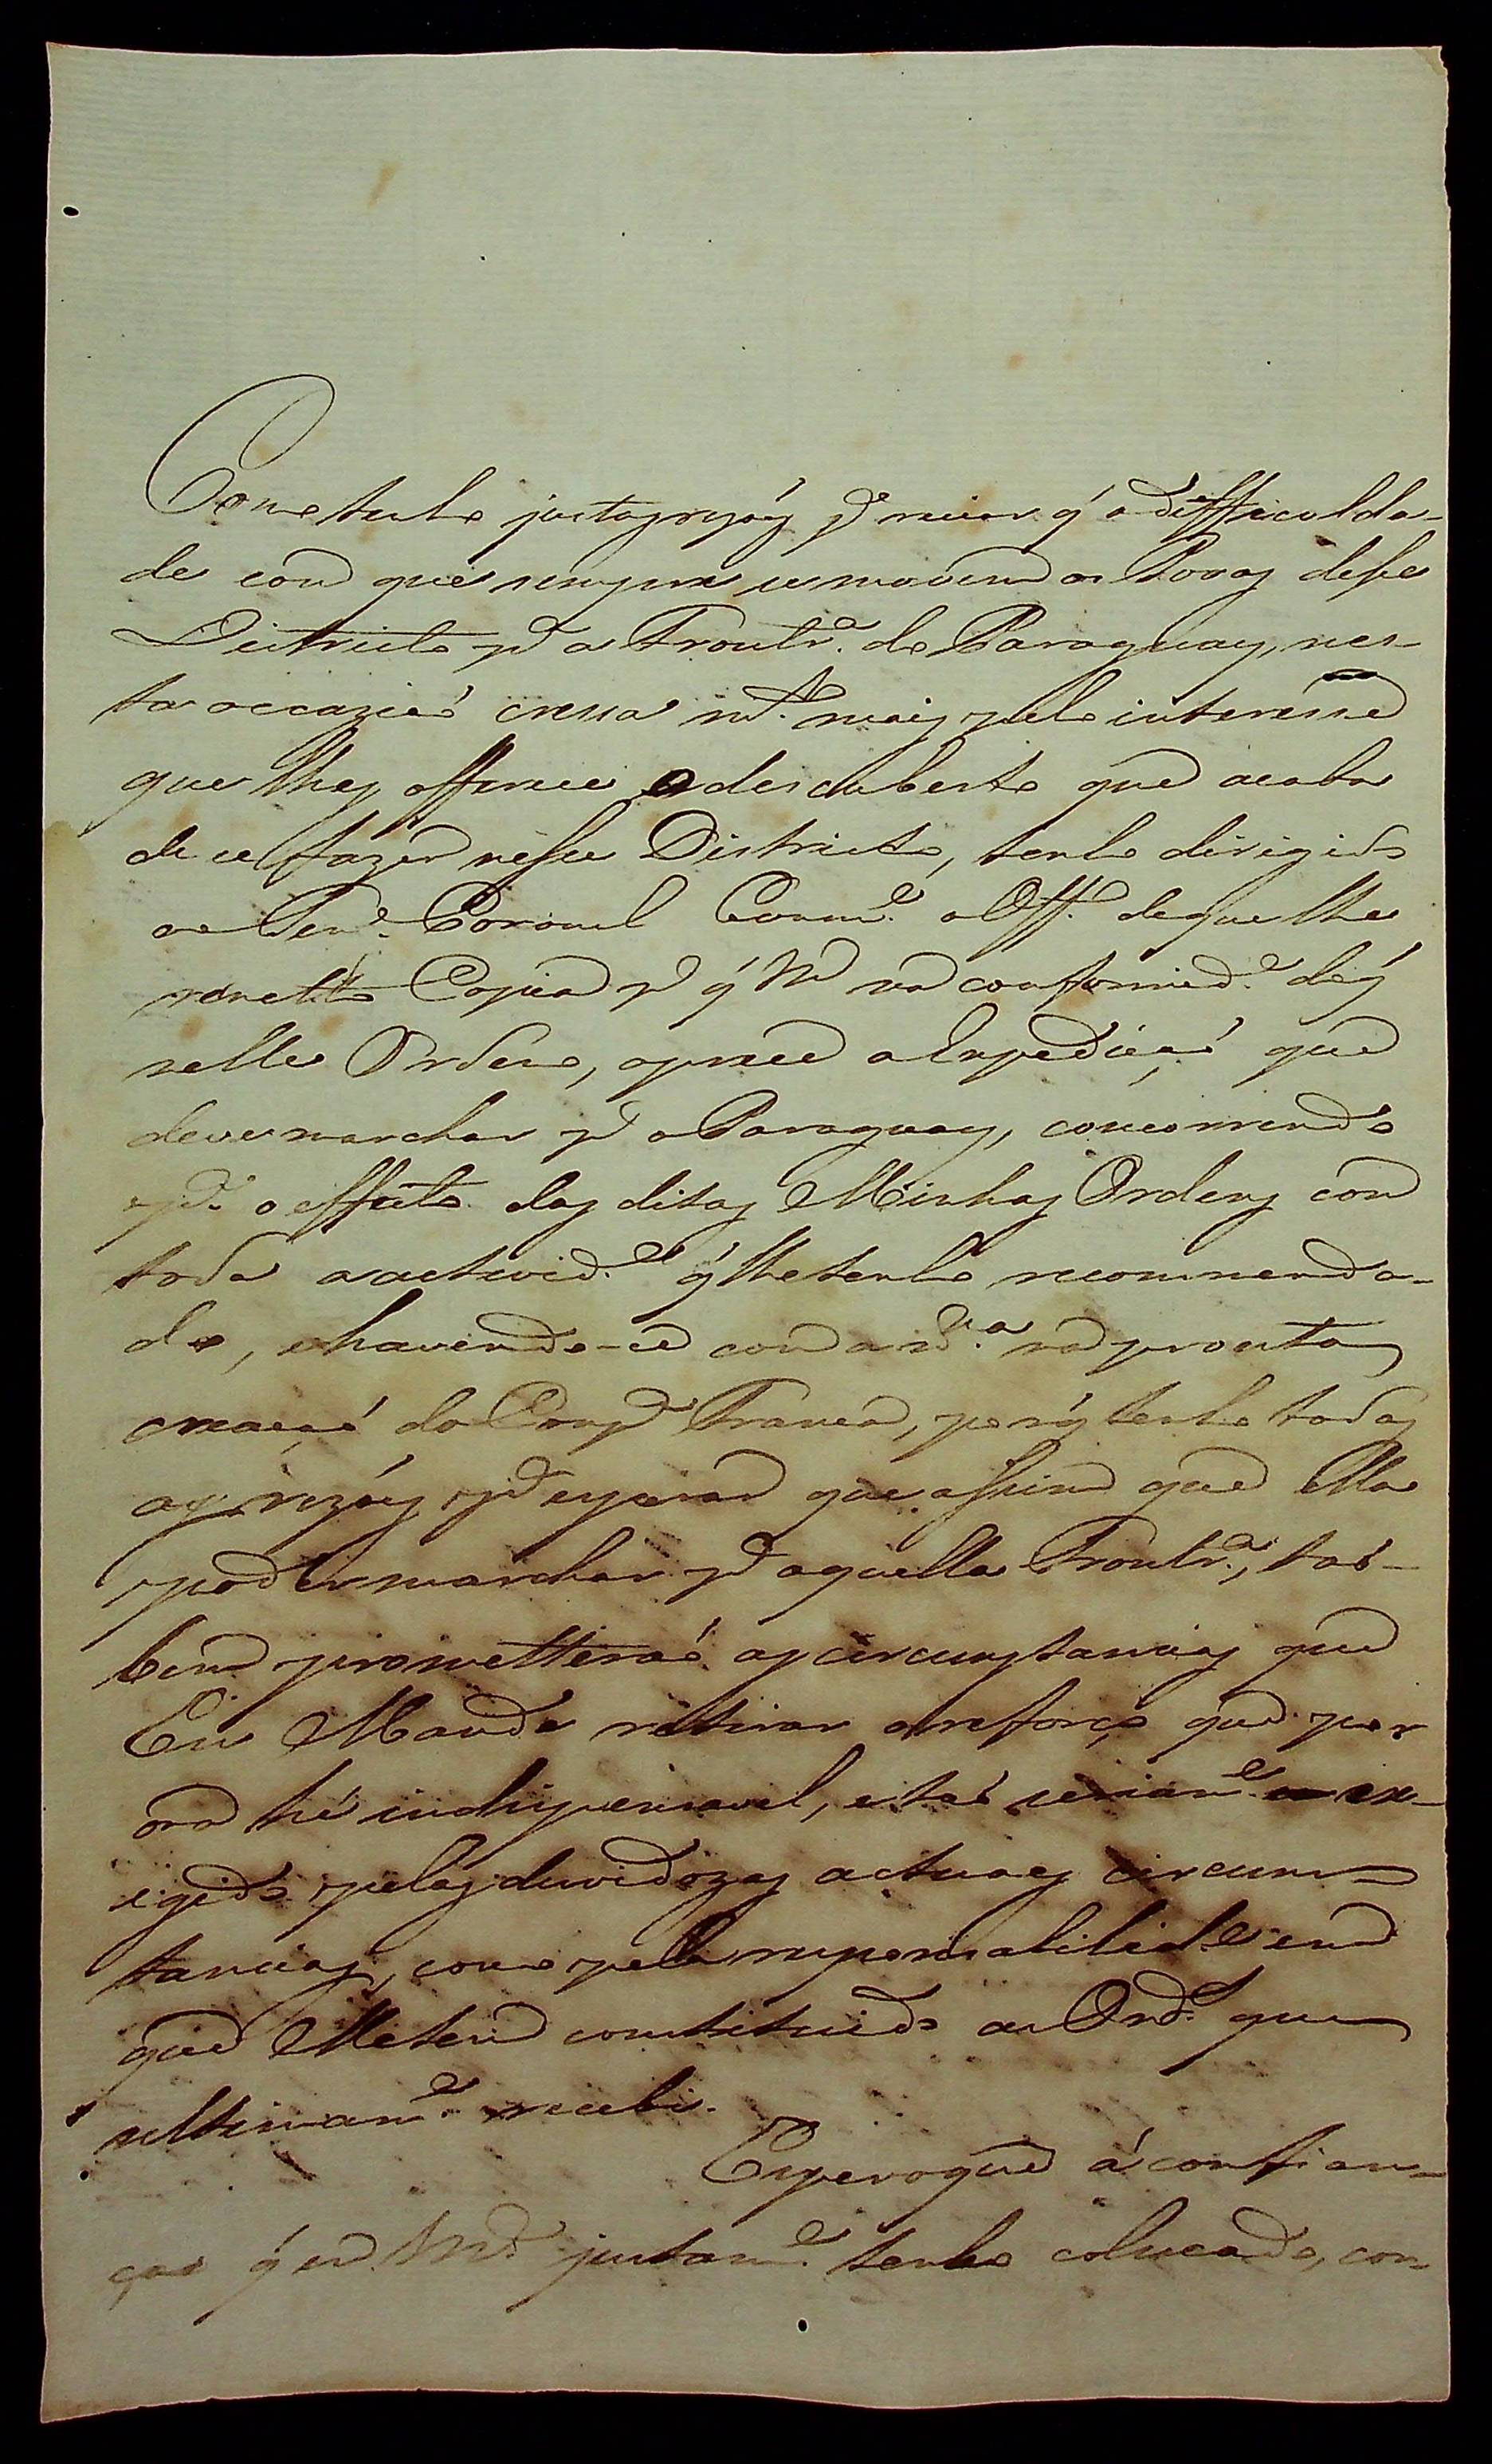 Como tenho justas rasões p.ª recear q' a difficulda-
de com que sempre se movem os Povos desse
Districto p.ª a Frontr.ª do Paraguay, nes-
ta occazião cressa m.to mais pelo interesse
que lhes offerece o descuberto que acaba
de se fazer nesse Districto, tenho dirigido
ao Ten.e Coronel Comm.e o Off.º de que lhe
remetto Copia p.ª q' Vm.ce na conformid.e do q'
nelle Ordeno, aprece a Expedição que
deve marchar p.ª o Paraguay, concorrendo
p.ª o effeito das ditas Minhas Ordens com
toda a actuvid.e q' lhe tenho recommenda-
do, e havendo-se com a m.ma na prompta
creação da Comp.ª Franca, por q' tenho todas
as rezões p.ª esperar que assim que ella
poder marchar p.ª aquella Frontr.ª, tão-
bem prometterão as circunstancias que
Eu Mande retirar o reforço que por
ora hé indispensavel, e tão seriam.e ex-
egido pelas duvidozas actuaes circuns-
tancias, como pela responsabilid.e em
que Me tem constituido as Ord.s que
ultimam.e recebi.
Espero que a confian-
ça q' em Vm.ce justam.e tenho colucado, con-